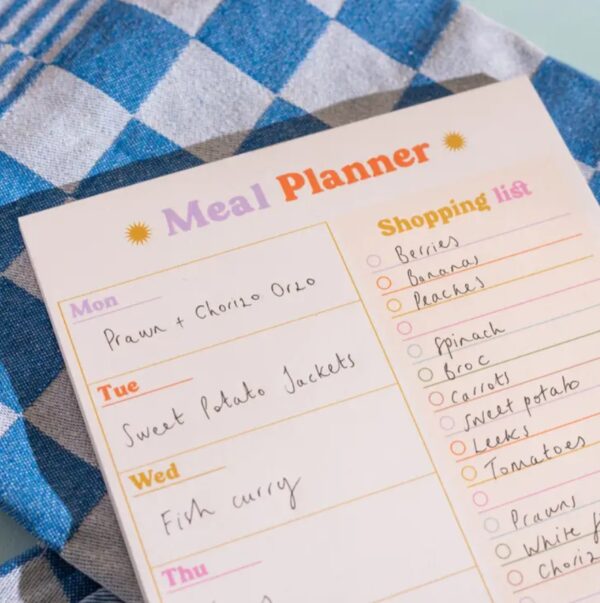 Meal Planner
Mon
Prawn + Chorizo Orzo
Tue
Sweet Potato Jackets
Wed
Fish curry
Thu
Shopping list
Berries
Bananas
Peaches
Spinach
Broc
Carrots
Sweet potato
Leeks
Tomatoes
Prawns
White